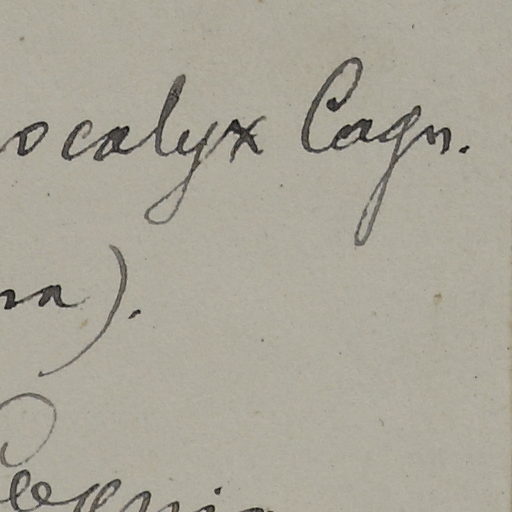 ocalyx Cogn.
na).